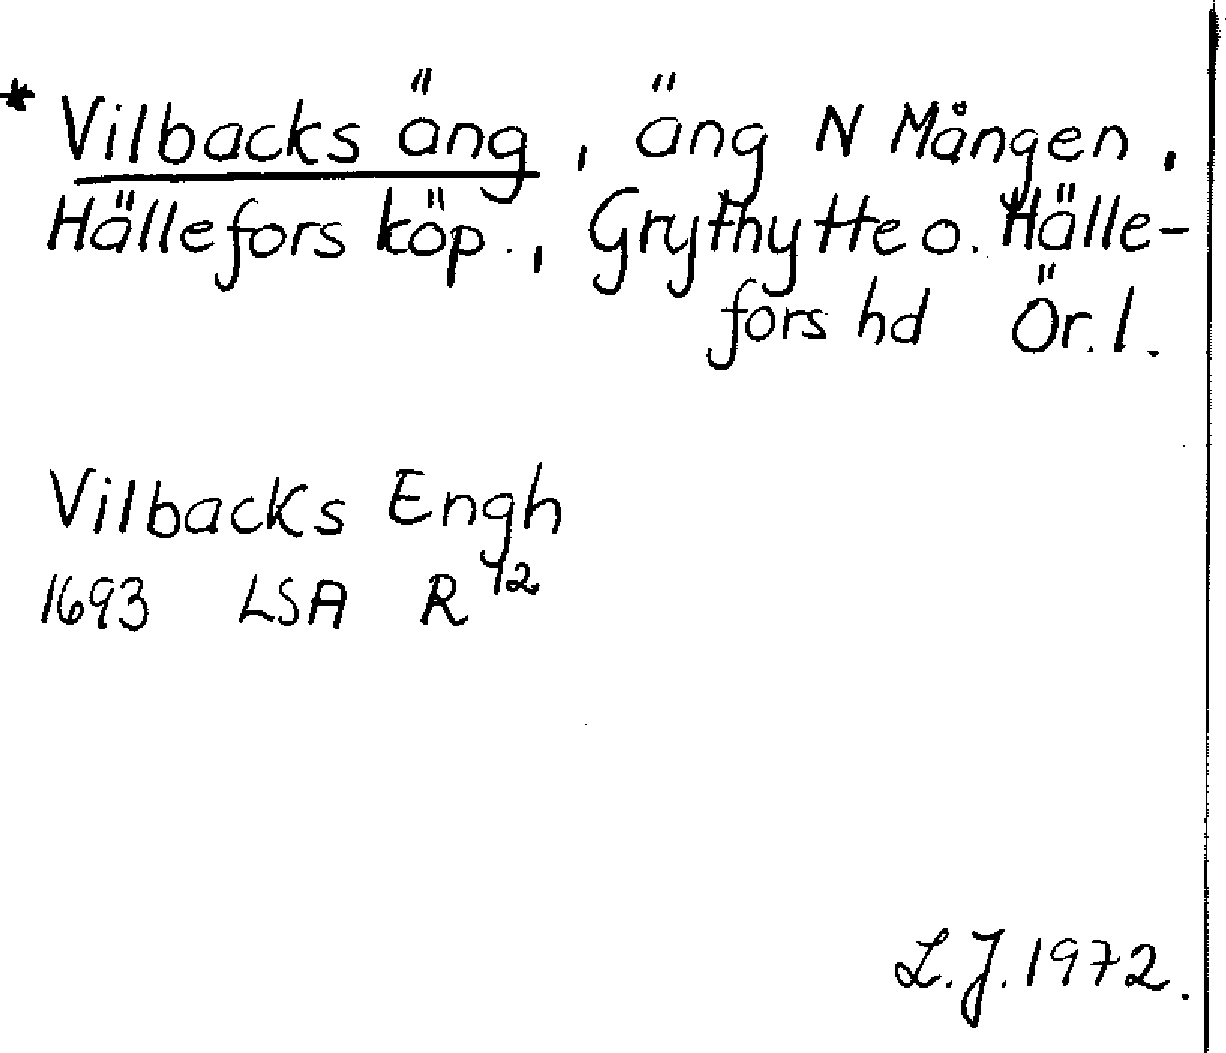 * Vilbacks äng, äng N Mången,
Hällefors köp., Grythytte o. Hälle-
fors hd Ör.l.
Vilbacks Engh
1693 LSA R 42
L.J. 1972.